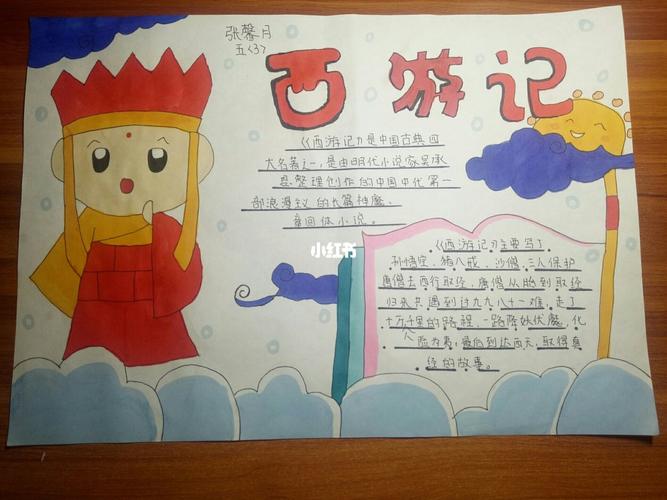 张馨月
五(3)
西游记
《西游记》是中国古典四
大名著之一,是由明代小说家吴承
恩整理创作的中国古代第一
部浪漫主义的长篇神魔
章回体小说。
小红书
《西游记》主要写了
孙悟空,猪八戒,沙僧,三人保护
唐僧去西行取经,唐僧从胎到取经
归来共遇到过九九八十一难,走了
十万千里的路程,一路降妖伏魔,化
险为夷,最后到达西天,取得真
经的故事。